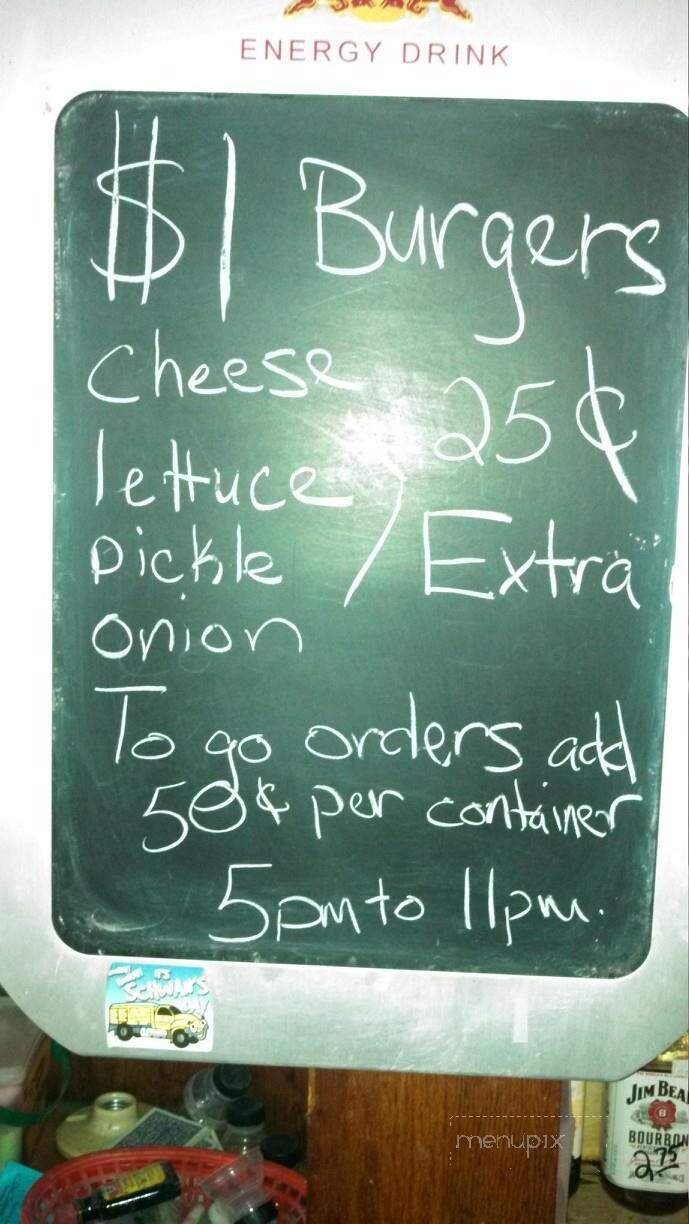 ENERGY DRINK
$1 Burgers
Cheese
lettuce
pickle
onion
25¢
Extra
To go orders add
50¢ per container
5pm to 11pm.
IT'S
SCHWAN'S
DAY
JIM BEA
BOURBON
2.75
menupix